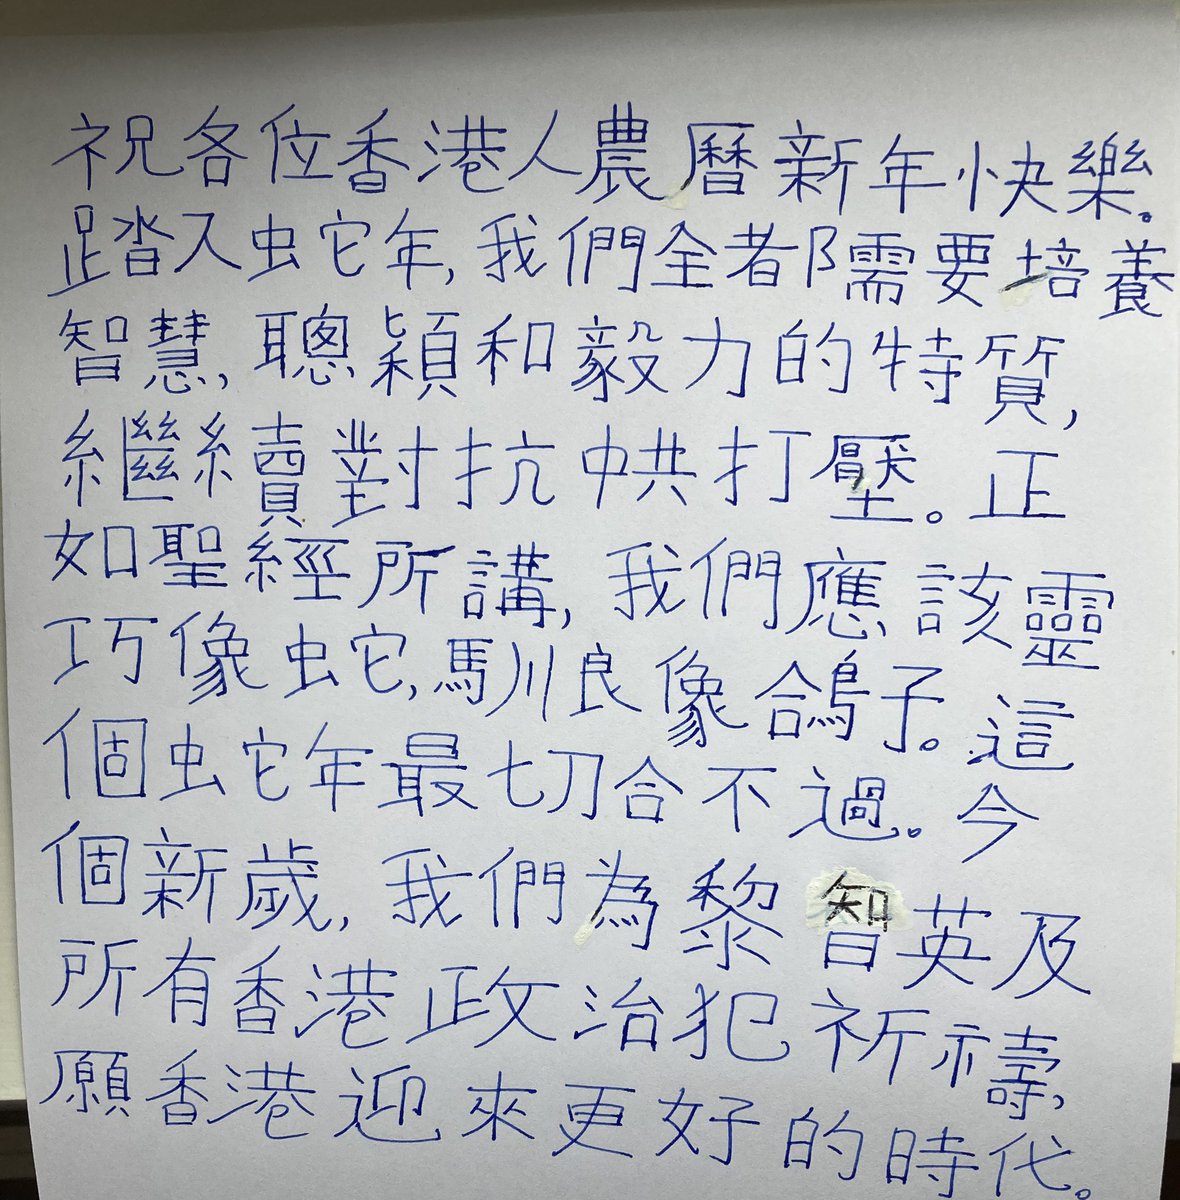 祝各位香港人農曆新年快樂。
踏入蛇年,我們全都需要培養
智慧,聰穎和毅力的特質,
繼續對抗中共打壓。正
如聖經所講,我們應該靈
巧像蛇,馴良像鴿子。這
個蛇年最切合不過。今
個新歲,我們為黎智英及
所有香港政治犯祈禱,
願香港迎來更好的時代。